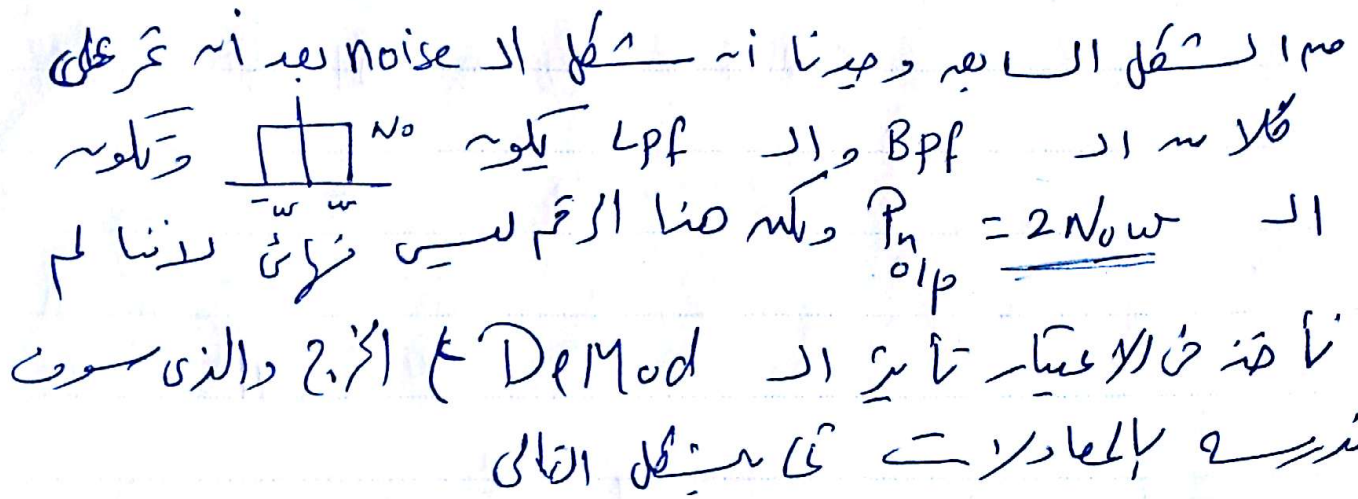 من الشكل السابق وجدنا أن شكل الـ noise بعد أن تمر على
كلا من الـ Bpf والـ Lpf يكون N₀ -w w وتكون
الـ Pn o/p = 2N₀w ولكن هنا الرقم ليس نهائى لأننا لم
نأخذ فى الاعتبار تأثير الـ DeMod ع الخرج والذى سوف
ندرسه بالمعادلات كالشكل التالى